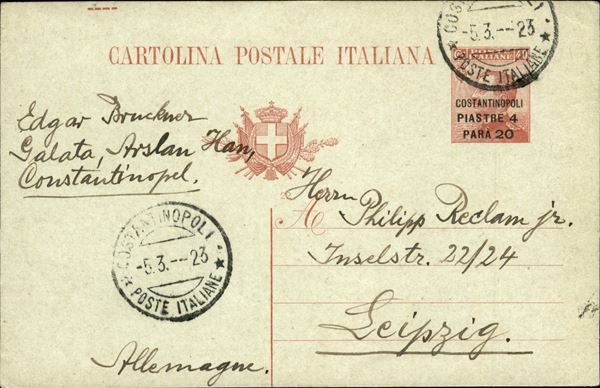 CARTOLINA POSTALE ITALIANA
COSTANTINOPOLI
-5.3.--23
POSTE ITALIANE
COSTANTINOPOLI
PIASTRE 4
PARÀ 20
Edgar Bruckner
Galata, Arslan Han,
Constantinopel.
Herrn
A Philipp Reclam jr.
Inselstr. 22/24
Leipzig.
COSTANTINOPOLI
-5.3.--23
POSTE ITALIANE
Allemagne.